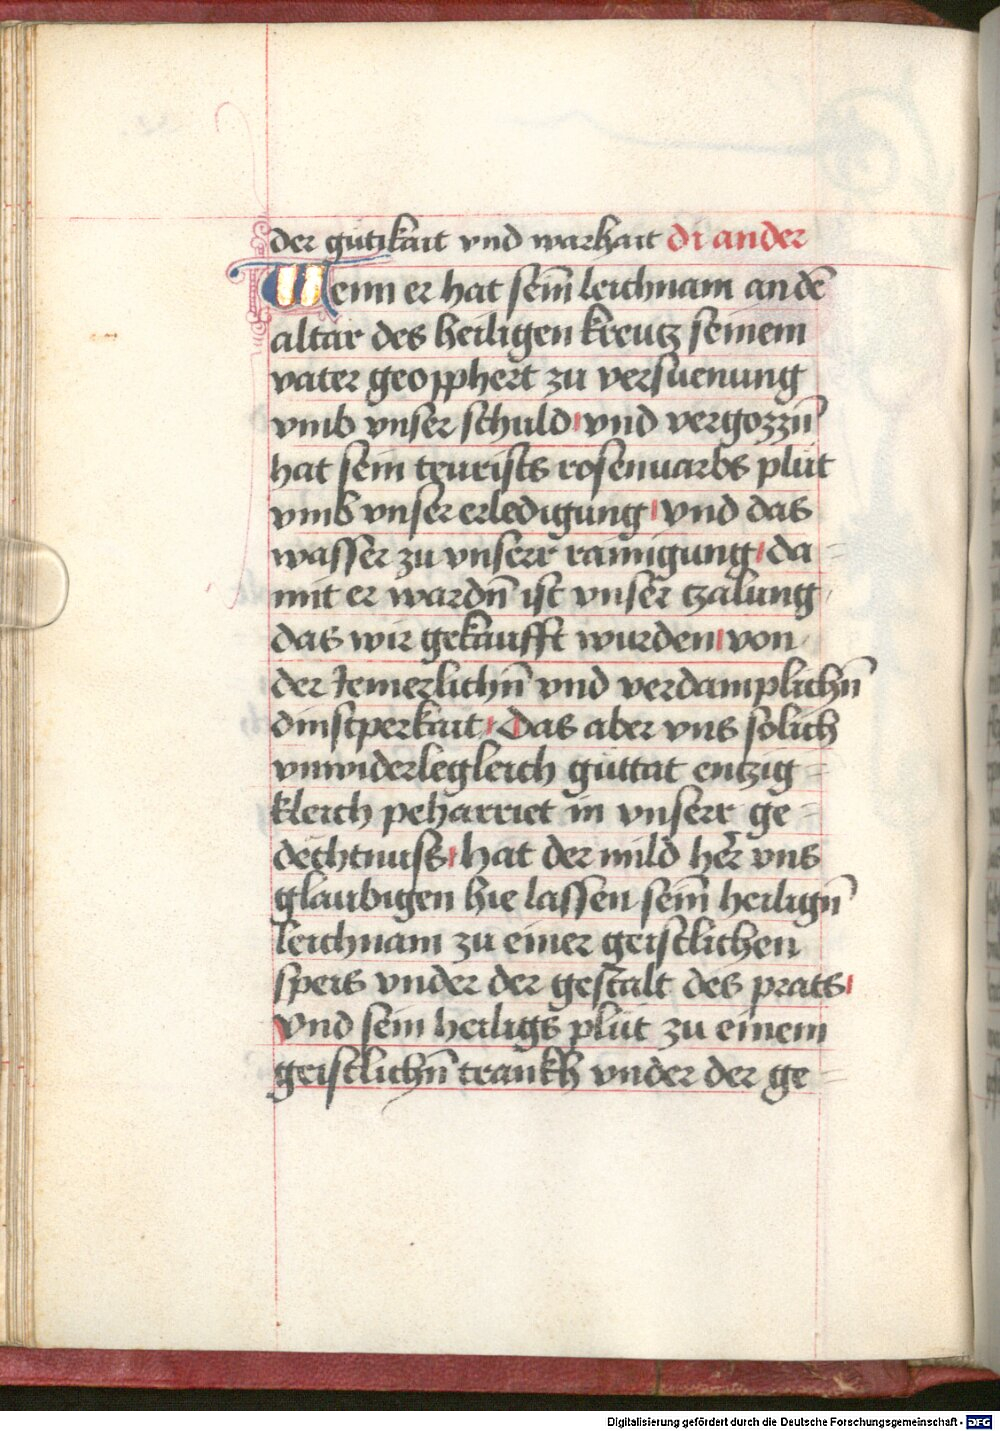 der gütikait vnd warhait di ander
Wenn er hat sein̄ leichnam an dē
altar des heiligen kreutz seinem
vater geopphert zu versuenung
vmb vnser schuld vnd vergozzn̄
hat sein teurists rosenuarbs plüt
vmb vnser erledigung vnd das
wasser zu vnserr rainigung da=
mit er wardn̄ ist vnser tzalung
das wir gekaufft wurden von
der Jemerlichn̄ vnd verdamplichn̄
dinstperkait Das aber vns solich
vnwiderlegleich guttat entzig=
kleich peharriet in vnserr ge=
dechtnuss hat der mild herr vns
glaubigen hie lassen sein̄ heilign̄
leichnam zu einer geistlichen
speis vnder der gestalt des prats
Vnd sein heiligs plüt zu einem
geistlichn̄ trankh vnder der ge=
Digitalisierung gefördert durch die Deutsche Forschungsgemeinschaft - DFG